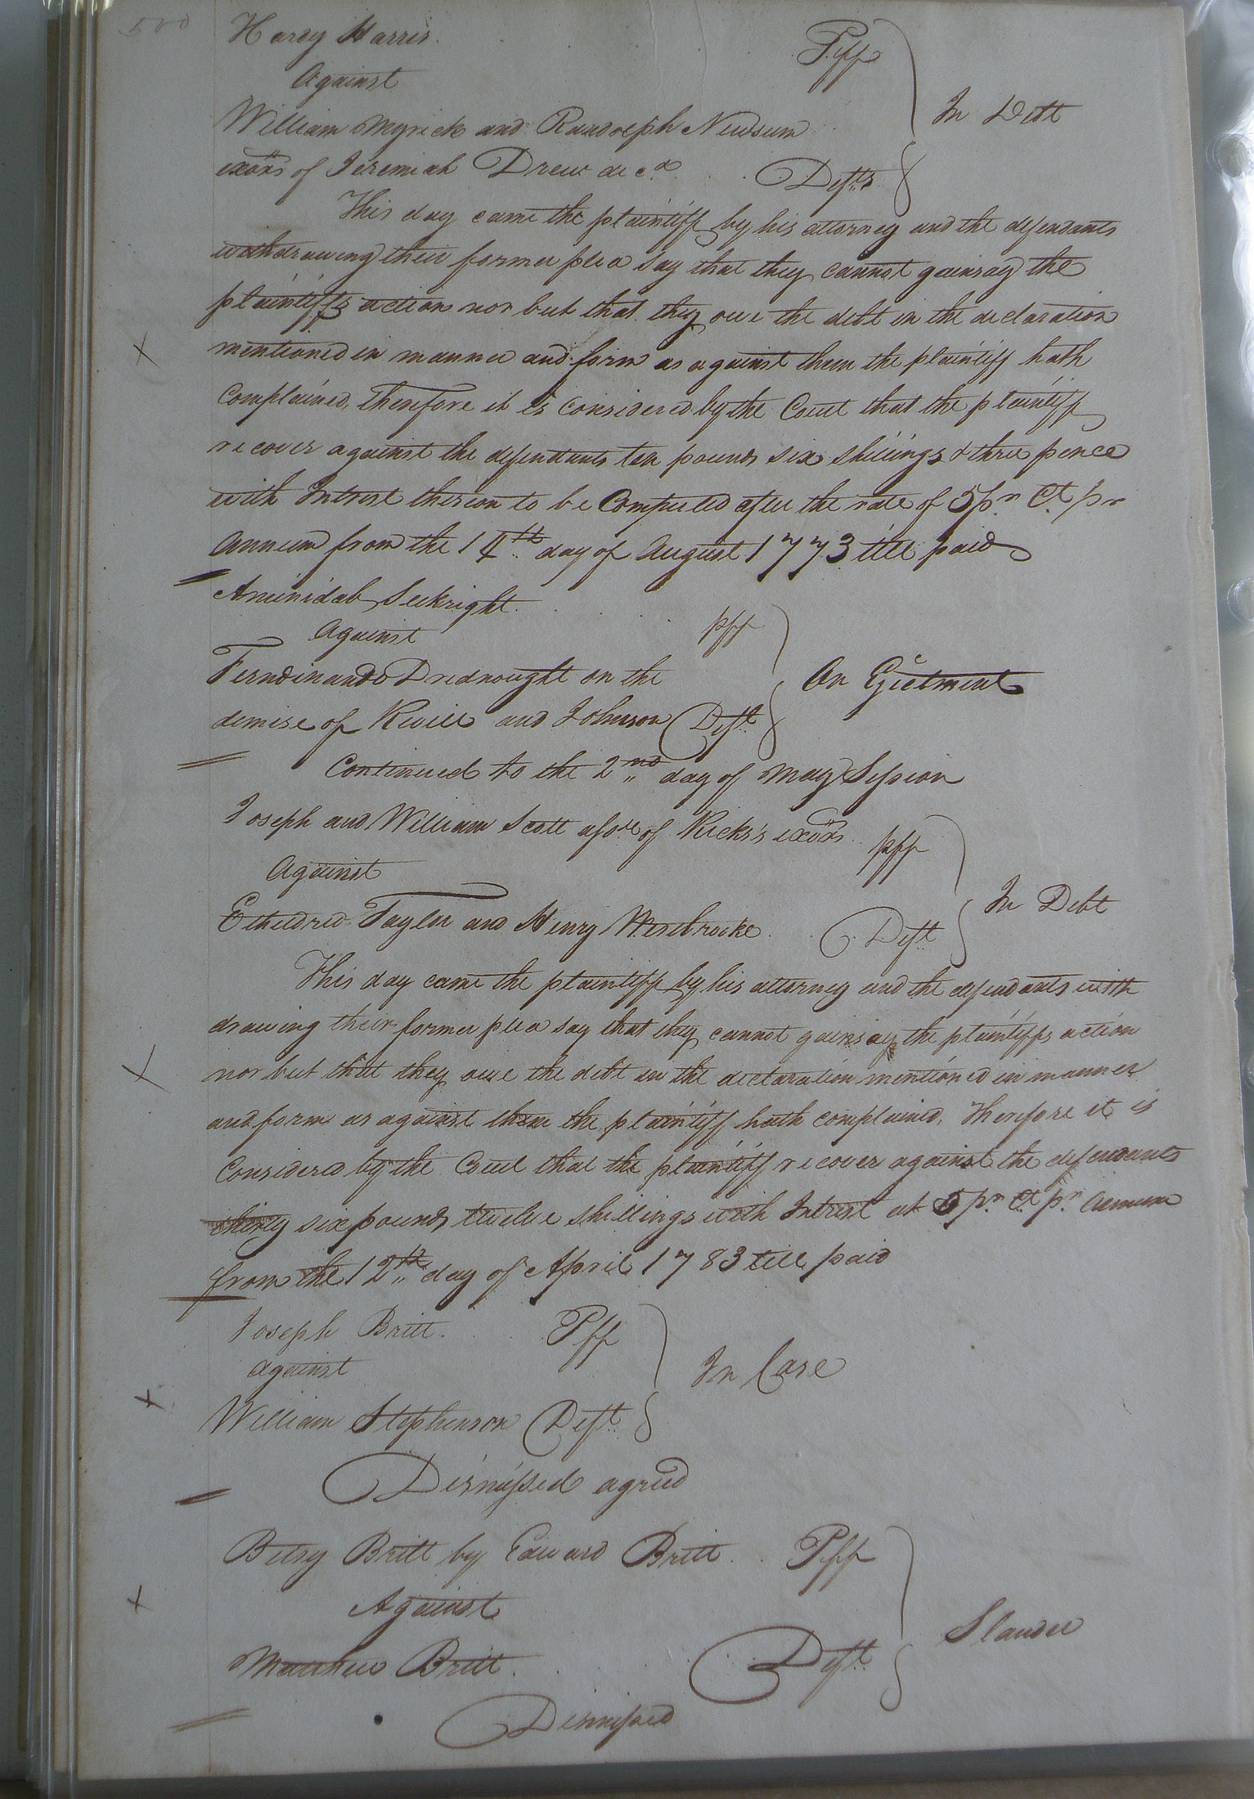 500
Hardy Harris. Plff
Against
In Debt
William Myrick and Randolph Newsum
exors of Jeremiah Drew decd. Defts
This day came the plaintiff by his attorney and the defendants
withdrawing their former plea say that they cannot gainsay the
plaintiffs action nor but that they owe the debt in the declaration
mentioned in manner and form as against them the plaintiff hath
Complained, Therefore it is Considered by the Court that the plaintiff
recover against the defendants ten pounds six shillings & three pence
with Intrest thereon to be Computed after the rate of 5 pr. Ct. pr
Annum from the 14th day of August 1773 till paid
Aminidab Seekright. pff
Against
Ferdinando Drednought on the
An Ejectment
demise of Revill and Johnson Deft.
Continued to the 2nd day of May Session
Joseph and William Scott assee of Ricks's exors. pff
Against
In Debt
Etheldred Taylor and Henry Westbrooke. Deft
This day came the plaintiff by his attorney and the defendants with
drawing their former plea say that they cannot gainsay the plaintiffs action
nor but that they owe the debt in the declaration mentioned in manner
and form as against them the plaintiff hath complained, Therefore it is
Considered by the Court that the plaintiff recover against the defendants
thirty six pounds twelve shillings with Intrest at 5 pr. Ct. pr. Annum
from the 12th day of April 1783 till paid
Joseph Britt. Pff
against
In Case
William Stephenson Deft.
Dismissed agreed
Betsy Britt by Edward Britt. Plff
Against
Slander
Matthew Britt. Deft.
Dismissed